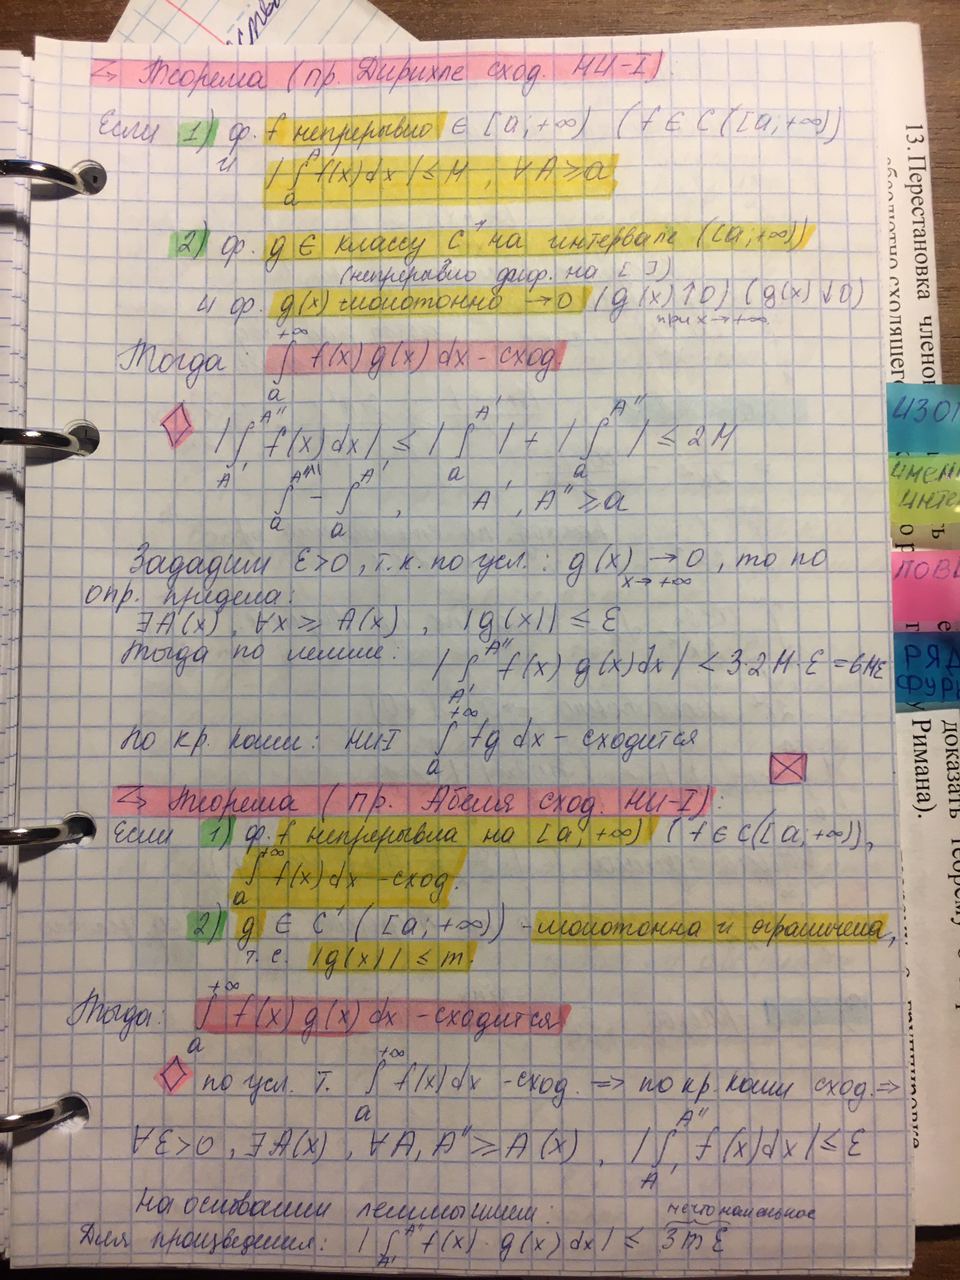 Теорема (пр. Дирихле сход. НИ-I):
Если 1) ф. f непрерывно ∈ [a;+∞) (f ∈ C([a;+∞))
и |∫ₐᴬ f(x)dx| ≤ M, ∀A ≥ a
2) ф. g ∈ классу C¹ на интервале ([a;+∞))
(непрерывно диф. на [ ])
и ф. g(x) - монотонно → 0 (g(x)↑0) (g(x)↓0)
при x→+∞
Тогда ∫ₐ^{+∞} f(x)g(x)dx - сход
|∫_{A'}^{A''} f(x)dx| ≤ |∫ₐ^{A'}| + |∫ₐ^{A''}| ≤ 2M
∫ₐ^{A''} - ∫ₐ^{A'}, A', A'' ≥ a
Зададим ε>0, т.к. по усл.: g(x) → 0, то по
x→+∞
опр. предела:
∃A(x), ∀x ≥ A(x), |g(x)| ≤ ε
Тогда по лемме: |∫_{A'}^{A''} f(x) g(x)dx| ≤ 3·2M·ε = 6Mε
По кр. Коши: НИ-I ∫ₐ^{+∞} fg dx - сходится
Теорема (пр. Абеля сход. НИ-I):
Если 1) ф. f непрерывна на [a;+∞) (f ∈ C([a;+∞)),
∫ₐ^{+∞} f(x)dx - сход.
2) g ∈ C¹ ([a;+∞)) - монотонна и ограничена,
т.е. |g(x)| ≤ m.
Тогда: ∫ₐ^{+∞} f(x)g(x)dx - сходится
по усл. т. ∫ₐ^{+∞} f(x)dx - сход. ⇒ по кр. Коши сход. ⇒
∀ε>0, ∃A(x), ∀A, A'' ≥ A(x), |∫_{A'}^{A''} f(x)dx| ≤ ε
На основании леммы
Для произведения: |∫_{A'}^{A''} f(x)·g(x)dx| ≤ 3mε
13. Перестановка членов
абсолютно сходящегося
доказать теорему
Римана).
ИЗО
ИНТЕ
ПОВ
РЯД
ФУР